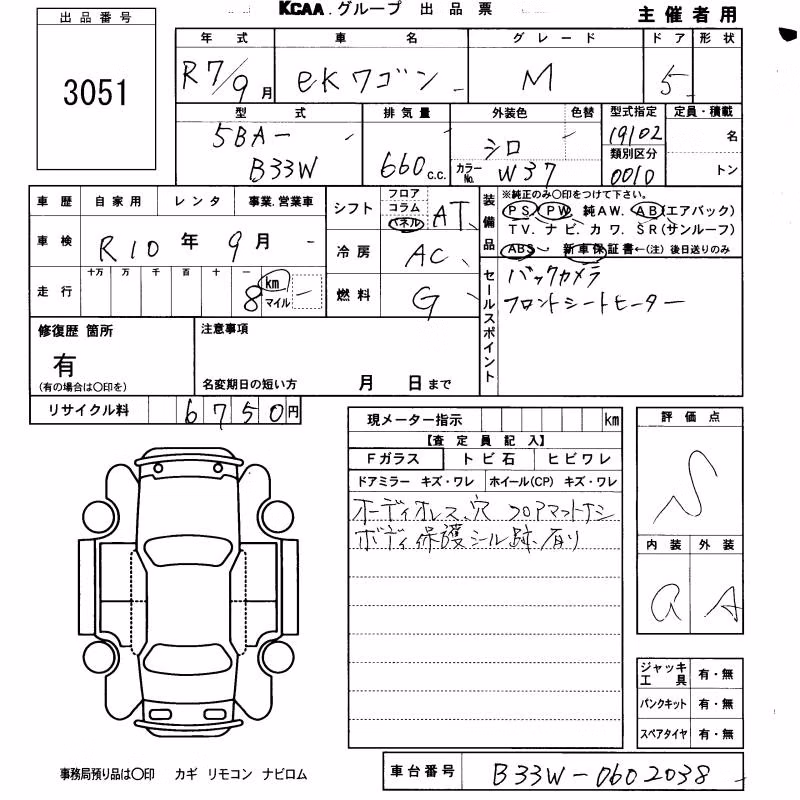 出品番号
3051
KCAA.グループ 出品票
主催者用
年式 車名 グレード ドア 形状
R7/9月 eKワゴン M 5
型式 排気量 外装色 色替 型式指定 定員・積載
5BA-
B33W 660c.c. シロ 19102 名
カラーNo. W37 類別区分 0010 トン
車歴 自家用 レンタ 事業.営業車
車検 R10年9月
走行 十万 万 千 百 十 一 8 km マイル
シフト フロア コラム パネル AT
冷房 AC
燃料 G
装備品 ※純正のみ〇印をつけて下さい。
PS. PW. 純AW. AB(エアバック)
TV. ナビ. カワ. SR(サンルーフ)
ABS 新車保証書←(注)後日送りのみ
セールスポイント バックカメラ
フロントシートヒーター
修復歴 箇所
有
(有の場合は〇印を)
注意事項
名変期日の短い方 月 日まで
リサイクル料 6750円
現メーター指示 km
【査定員記入】
Fガラス トビ石 ヒビワレ
ドアミラー キズ・ワレ ホイール(CP) キズ・ワレ
オーディオレス、穴 フロアマットナシ
ボディ保護シール跡、有り
評価点
S
内装 外装
Q A
ジャッキ工具 有・無
パンクキット 有・無
スペアタイヤ 有・無
事務局預り品は〇印 カギ リモコン ナビロム
車台番号 B33W-0602038